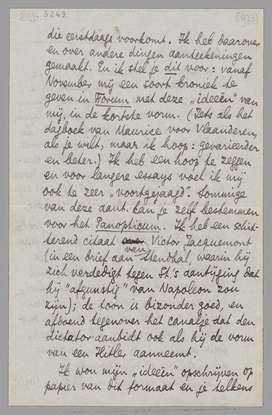 5249
[923]
die eerstdaags voorkomt. Ik heb daarover
en over andere dingen aanteekeningen
gemaakt. En ik stel je dit voor: vanaf
November mij een soort kroniek te
geven in Forum met deze „ideeën" van
mij, in de kortste vorm. (Zooiets als het
dagboek van Maurice voor Vlaanderen,
als je wilt, maar ik hoop: gevarieerder
en beter.) Ik heb een hoop te zeggen
en voor langere essays voel ik mij
ook te zeer „voortgejaagd". Sommige
van deze dant. kan je zelf bestemmen
voor het Panopticum. Ik heb een schit-
terend citaat van Victor Jacquemont
(in een brief aan Stendhal, waarin hij
zich verdedigt tegen St.'s aantijging dat
hij "afgunstig" van Napoleon zou
zijn); de toon is bizonder goed, en
afdoend tegenover het canaille dat den
dictator aanbidt ook als hij de vorm
van een Hitler aanneemt.
Ik wou mijn „ideeën" opschrijven op
papier van dit formaat en je telkens